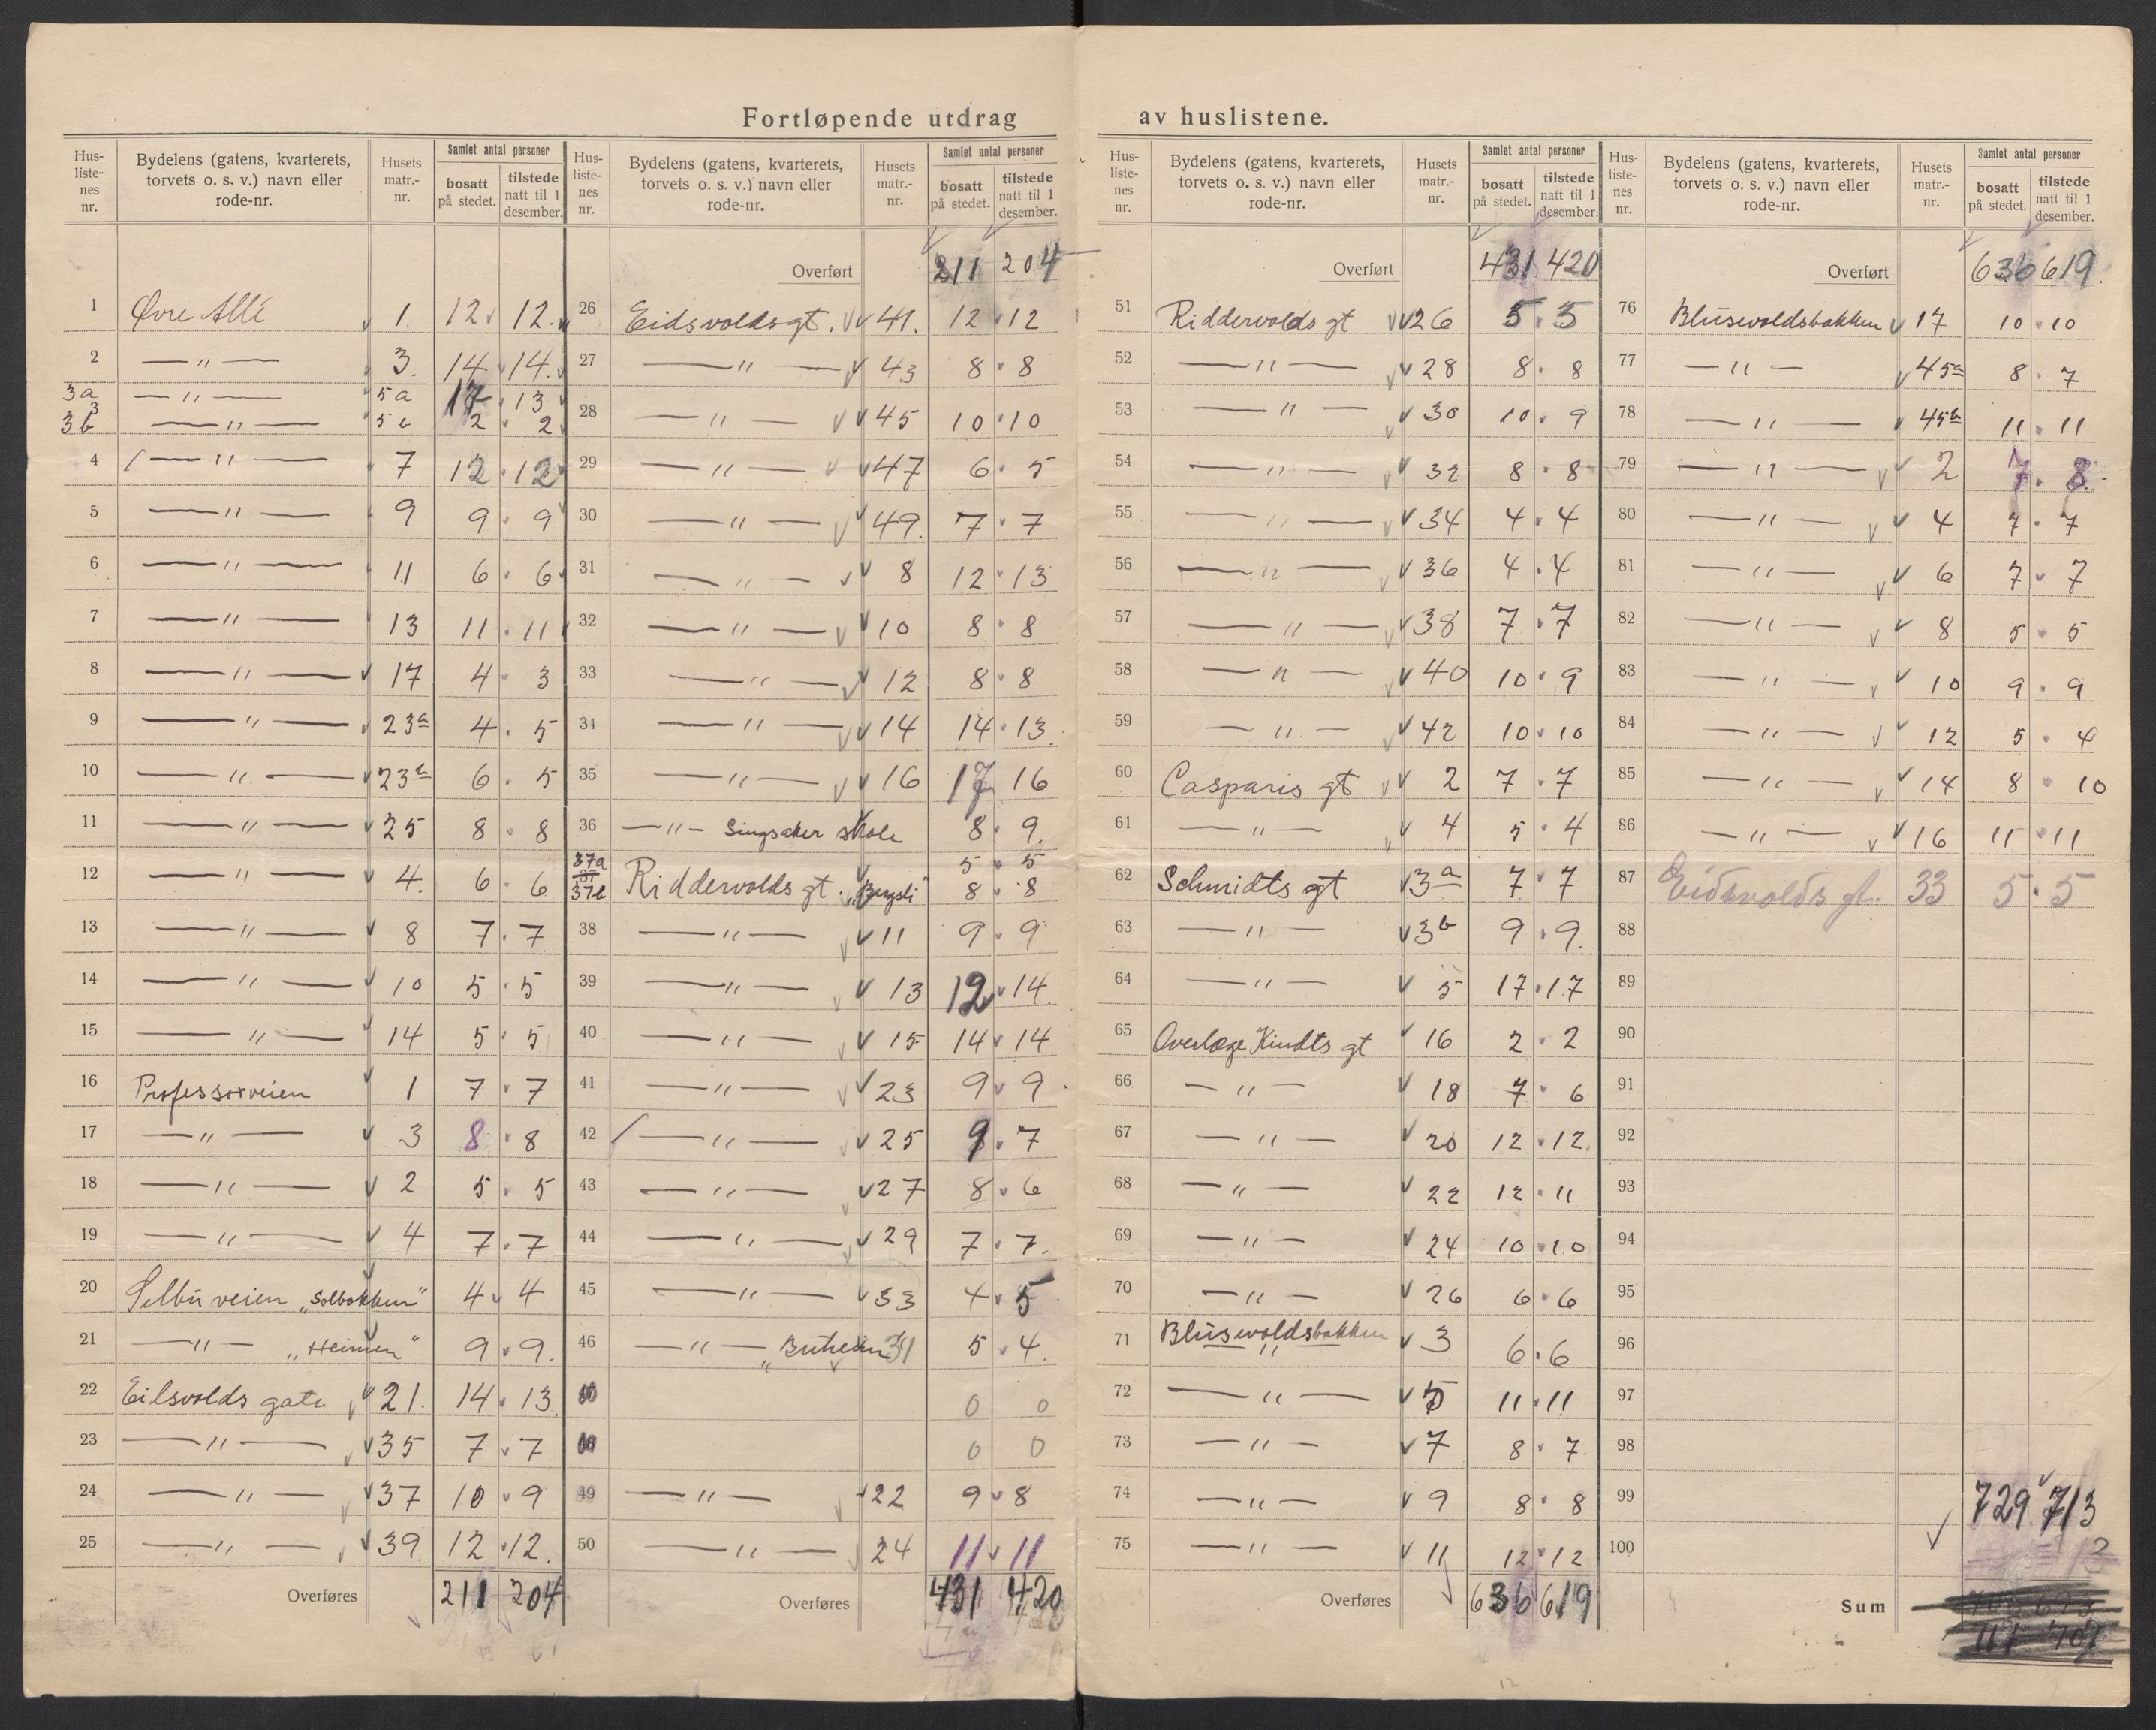 Fortløpende utdrag av huslistene.
Hus-liste-nes nr. Bydelens (gatens, kvarterets, torvets o. s. v.) navn eller rode-nr. Husets matr.-nr. Samlet antal personer bosatt på stedet. tilstede natt til 1 desember.
1 Øvre Allé 1. 12 12.
2 —"— 3. 14 14.
3a —"— 5a 17 13
3
3b —"— 5b 2 2
4 —"— 7 12 12
5 —"— 9 9 9
6 —"— 11 6 6
7 —"— 13 11 11
8 —"— 17 4 3
9 —"— 23a 4 5
10 —"— 23b 6 5
11 —"— 25 8 8
12 —"— 4. 6 6
13 —"— 8 7 7
14 —"— 10 5 5
15 —"— 14 5 5
16 Professorveien 1 7 7
17 —"— 3 8 8
18 —"— 2 5 5
19 —"— 4 7 7
20 Selbuveien „Solbakken" 4 4
21 —"— „Heimen" 9 9.
22 Eidsvolds gate 21. 14 13
23 —"— 35 7 7
24 —"— 37 10 9
25 —"— 39. 12 12.
Overføres 211 204
Hus-liste-nes nr. Bydelens (gatens, kvarterets, torvets o. s. v.) navn eller rode-nr. Husets matr.-nr. Samlet antal personer bosatt på stedet. tilstede natt til 1 desember.
Overført 211 204
26 Eidsvoldsgt. 41. 12 12
27 —"— 43 8 8
28 —"— 45 10 10
29 —"— 47 6 5
30 —"— 49. 7 7
31 —"— 8 12 13
32 —"— 10 8 8
33 —"— 12 8 8
34 —"— 14 14 13.
35 —"— 16 17 16
36 —"— Singsaker skole 8 9.
37a 5 5
37
37b Riddervolds gt. „Bergsli" 8 8
38 —"— 11 9 9
39 —"— 13 12 14.
40 —"— 15 14 14
41 —"— 23 9 9
42 —"— 25 9 7
43 —"— 27 8 6
44 —"— 29 7 7.
45 —"— 33 4 5
46 —"— 31 5 4.
0 0
0 0
49 —"— 22 9 8
50 —"— 24 11 11
Overføres 431 420
Hus-liste-nes nr. Bydelens (gatens, kvarterets, torvets o. s. v.) navn eller rode-nr. Husets matr.-nr. Samlet antal personer bosatt på stedet. tilstede natt til 1 desember.
Overført 431 420
51 Riddervolds gt 26 5 5
52 —"— 28 8 8
53 —"— 30 10 9
54 —"— 32 8 8
55 —"— 34 4 4
56 —"— 36 4 4
57 —"— 38 7 7
58 —"— 40 10 9
59 —"— 42 10 10
60 Casparis gt 2 7 7
61 —"— 4 5 4
62 Schmidts gt 3a 7 7
63 —"— 3b 9 9.
64 —"— 5 17 17
65 Overlæge Kindts gt 16 2 2
66 —"— 18 7 6
67 —"— 20 12 12.
68 —"— 22 12 11
69 —"— 24 10 10
70 —"— 26 6 6
71 Blusuvoldsbakken 3 6 6
72 —"— 5 11 11
73 —"— 7 8 7
74 —"— 9 8 8
75 —"— 11 12 12
Overføres 636 619
Hus-liste-nes nr. Bydelens (gatens, kvarterets, torvets o. s. v.) navn eller rode-nr. Husets matr.-nr. Samlet antal personer bosatt på stedet. tilstede natt til 1 desember.
Overført 636 619.
76 Blusuvoldsbakken 17 10 10
77 —"— 45a 8 7
78 —"— 45b 11 11
79 —"— 2 7 8
80 —"— 4 7 7
81 —"— 6 7 7
82 —"— 8 5 5
83 —"— 10 9 9
84 —"— 12 5 4
85 —"— 14 8 10
86 —"— 16 11 11
87 Eidsvolds gt. 33 5 5
88
89
90
91
92
93
94
95
96
97
98
99 729 713
100
Sum